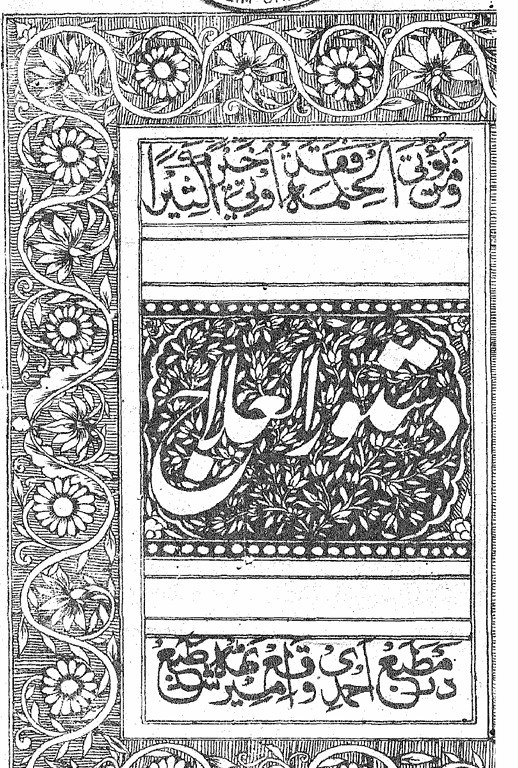 ومن يؤتى الحكمة فقد اوتي خيرا كثيرا
دستور العلاج
در مطبع احمدی واقع طبع شد